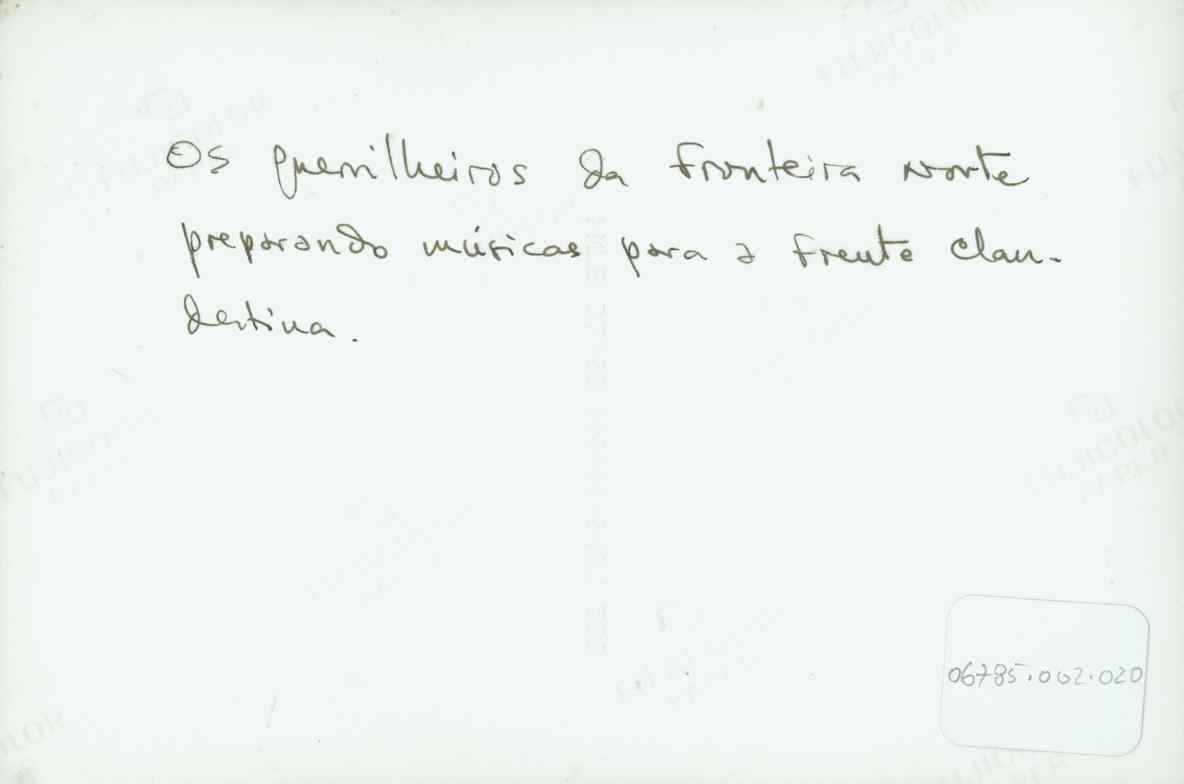 Os guerrilheiros da fronteira norte
preparando músicas para a frente clan-
destina.
06785.002.020
FUJICOLOR
PAPER